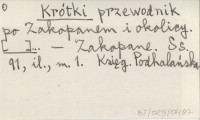 Krótki przewodnik
po Zakopanem i okolicy.
[ ]... – Zakopane. Ss.
91, il., m. 1. Księg. Podhalańska